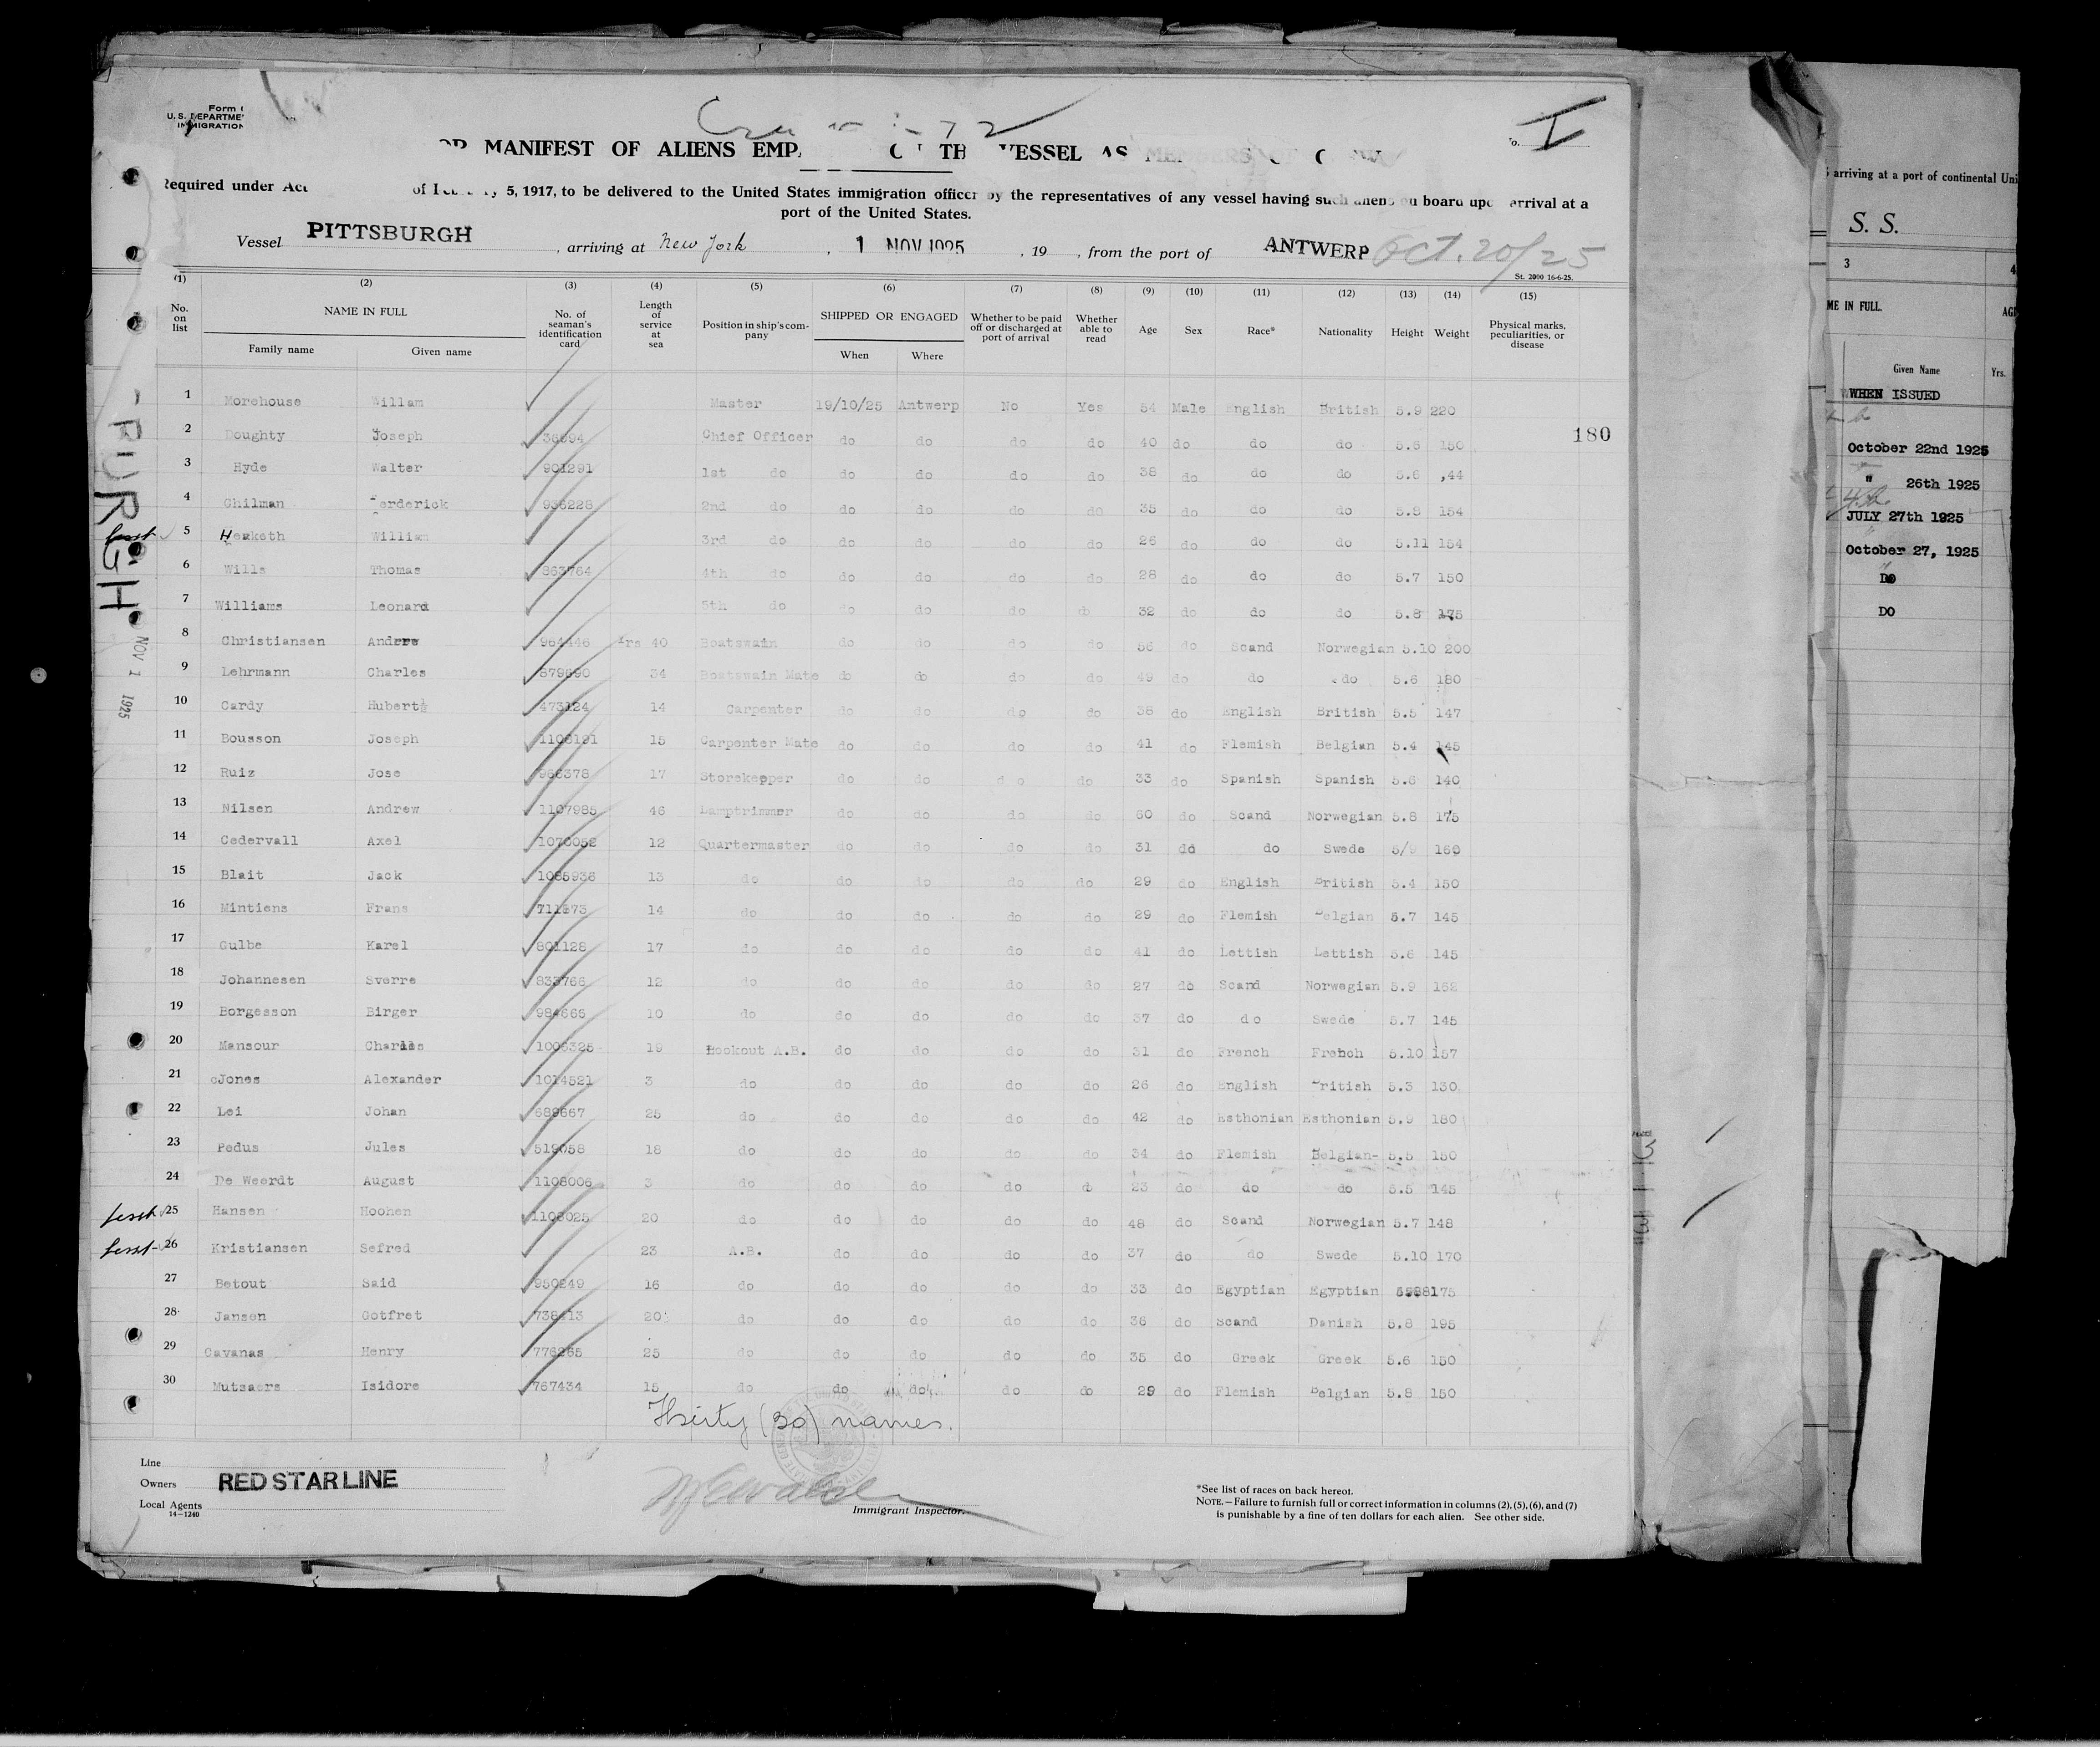 Form
U. S. DEPARTME
IMMIGRATION
MANIFEST OF ALIENS EMP VESSEL AS MEMBERS OF
Required under Act of February 5, 1917, to be delivered to the United States immigration officer by the representatives of any vessel having such aliens on board upon arrival at a
port of the United States.
Vessel PITTSBURGH, arriving at New York, 1 NOV 1925, 19 , from the port of ANTWERP Oct. 20/25
St. 2000 16-6-25.
(1) (2) (3) (4) (5) (6) (7) (8) (9) (10) (11) (12) (13) (14) (15)
No. on list NAME IN FULL Family name Given name No. of seaman's identification card Length of service at sea Position in ship's company SHIPPED OR ENGAGED When Where Whether to be paid off or discharged at port of arrival Whether able to read Age Sex Race* Nationality Height Weight Physical marks, peculiarities, or disease
1 Morehouse Willam Master 19/10/25 Antwerp No Yes 54 Male English British 5.9 220
180
2 Doughty Joseph Chief Officer do do do do 40 do do do 5.6 150
3 Hyde Walter 901291 1st do do do do do 38 do do do 5.6 ,44
4 Ghilman erderick 936228 2nd do do do do do 35 do do do 5.8 154
5 Hesketh William 3rd do do do do do 26 do do do 5.11 154
6 Wills Thomas 863764 4th do do do do do 28 do do do 5.7 150
7 Williams Leonard 5th do do do do do 32 do do do 5.8 175
8 Christiansen Andrew 964446 Yrs 40 Boatswain do do do do 56 do Scand Norwegian 5.10 200
9 Lehrmann Charles 879690 34 Boatswain Mate do do do do 49 do do do 5.6 180
10 Cardy Hubert 473124 14 Carpenter do do do do 38 do English British 5.5 147
11 Bousson Joseph 1108191 15 Carpenter Mate do do do do 41 do Flemish Belgian 5.4 145
12 Ruiz Jose 966378 17 Storekepper do do do do 33 do Spanish Spanish 5.6 140
13 Nilsen Andrew 1107985 46 Lamptrimmer do do do do 60 do Scand Norwegian 5.8 175
14 Cedervall Axel 1070052 12 Quartermaster do do do do 31 do do Swede 5/9 160
15 Blait Jack 1085936 13 do do do do do 29 do English British 5.4 150
16 Mintiens Frans 711873 14 do do do do do 29 do Flemish Belgian 5.7 145
17 Gulbe Karel 801128 17 do do do do do 41 do Lettish Lettish 5.6 145
18 Johannesen Sverre 833766 12 do do do do do 27 do Scand Norwegian 5.9 152
19 Borgesson Birger 984665 10 do do do do do 37 do do Swede 5.7 145
20 Mansour Charles 1006325 19 Hookout A.B. do do do do 31 do French French 5.10 157
21 Jones Alexander 1014521 3 do do do do do 26 do English British 5.3 130
22 Lei Johan 689667 25 do do do do do 42 do Esthonian Esthonian 5.9 180
23 Pedus Jules 519058 18 do do do do do 34 do Flemish Belgian- 5.5 150
24 De Weerdt August 1108006 3 do do do do do 23 do do do 5.5 145
25 Hansen Hoohen 1108025 20 do do do do do 48 do Scand Norwegian 5.7 148
26 Kristiansen Sefred 23 A.B. do do do do 37 do do Swede 5.10 170
27 Betout Said 950249 16 do do do do do 33 do Egyptian Egyptian 175
28 Jansen Gotfret 738413 20 do do do do do 36 do Scand Danish 5.8 195
29 Cavanas Henry 776265 25 do do do do do 35 do Greek Greek 5.6 150
30 Mutsaers Isidore 767434 15 do do do do do 29 do Flemish Belgian 5.8 150
Thirty (30) names.
Line
Owners RED STAR LINE
Local Agents
14—1240
Immigrant Inspector.
*See list of races on back hereof.
NOTE.—Failure to furnish full or correct information in columns (2), (5), (6), and (7)
is punishable by a fine of ten dollars for each alien. See other side.
NOV 1 1925
arriving at a port of continental Uni
S. S.
3 4
ME IN FULL. AG
Given Name Yrs.
WHEN ISSUED
October 22nd 1925
" 26th 1925
JULY 27th 1925
October 27, 1925
DO
DO